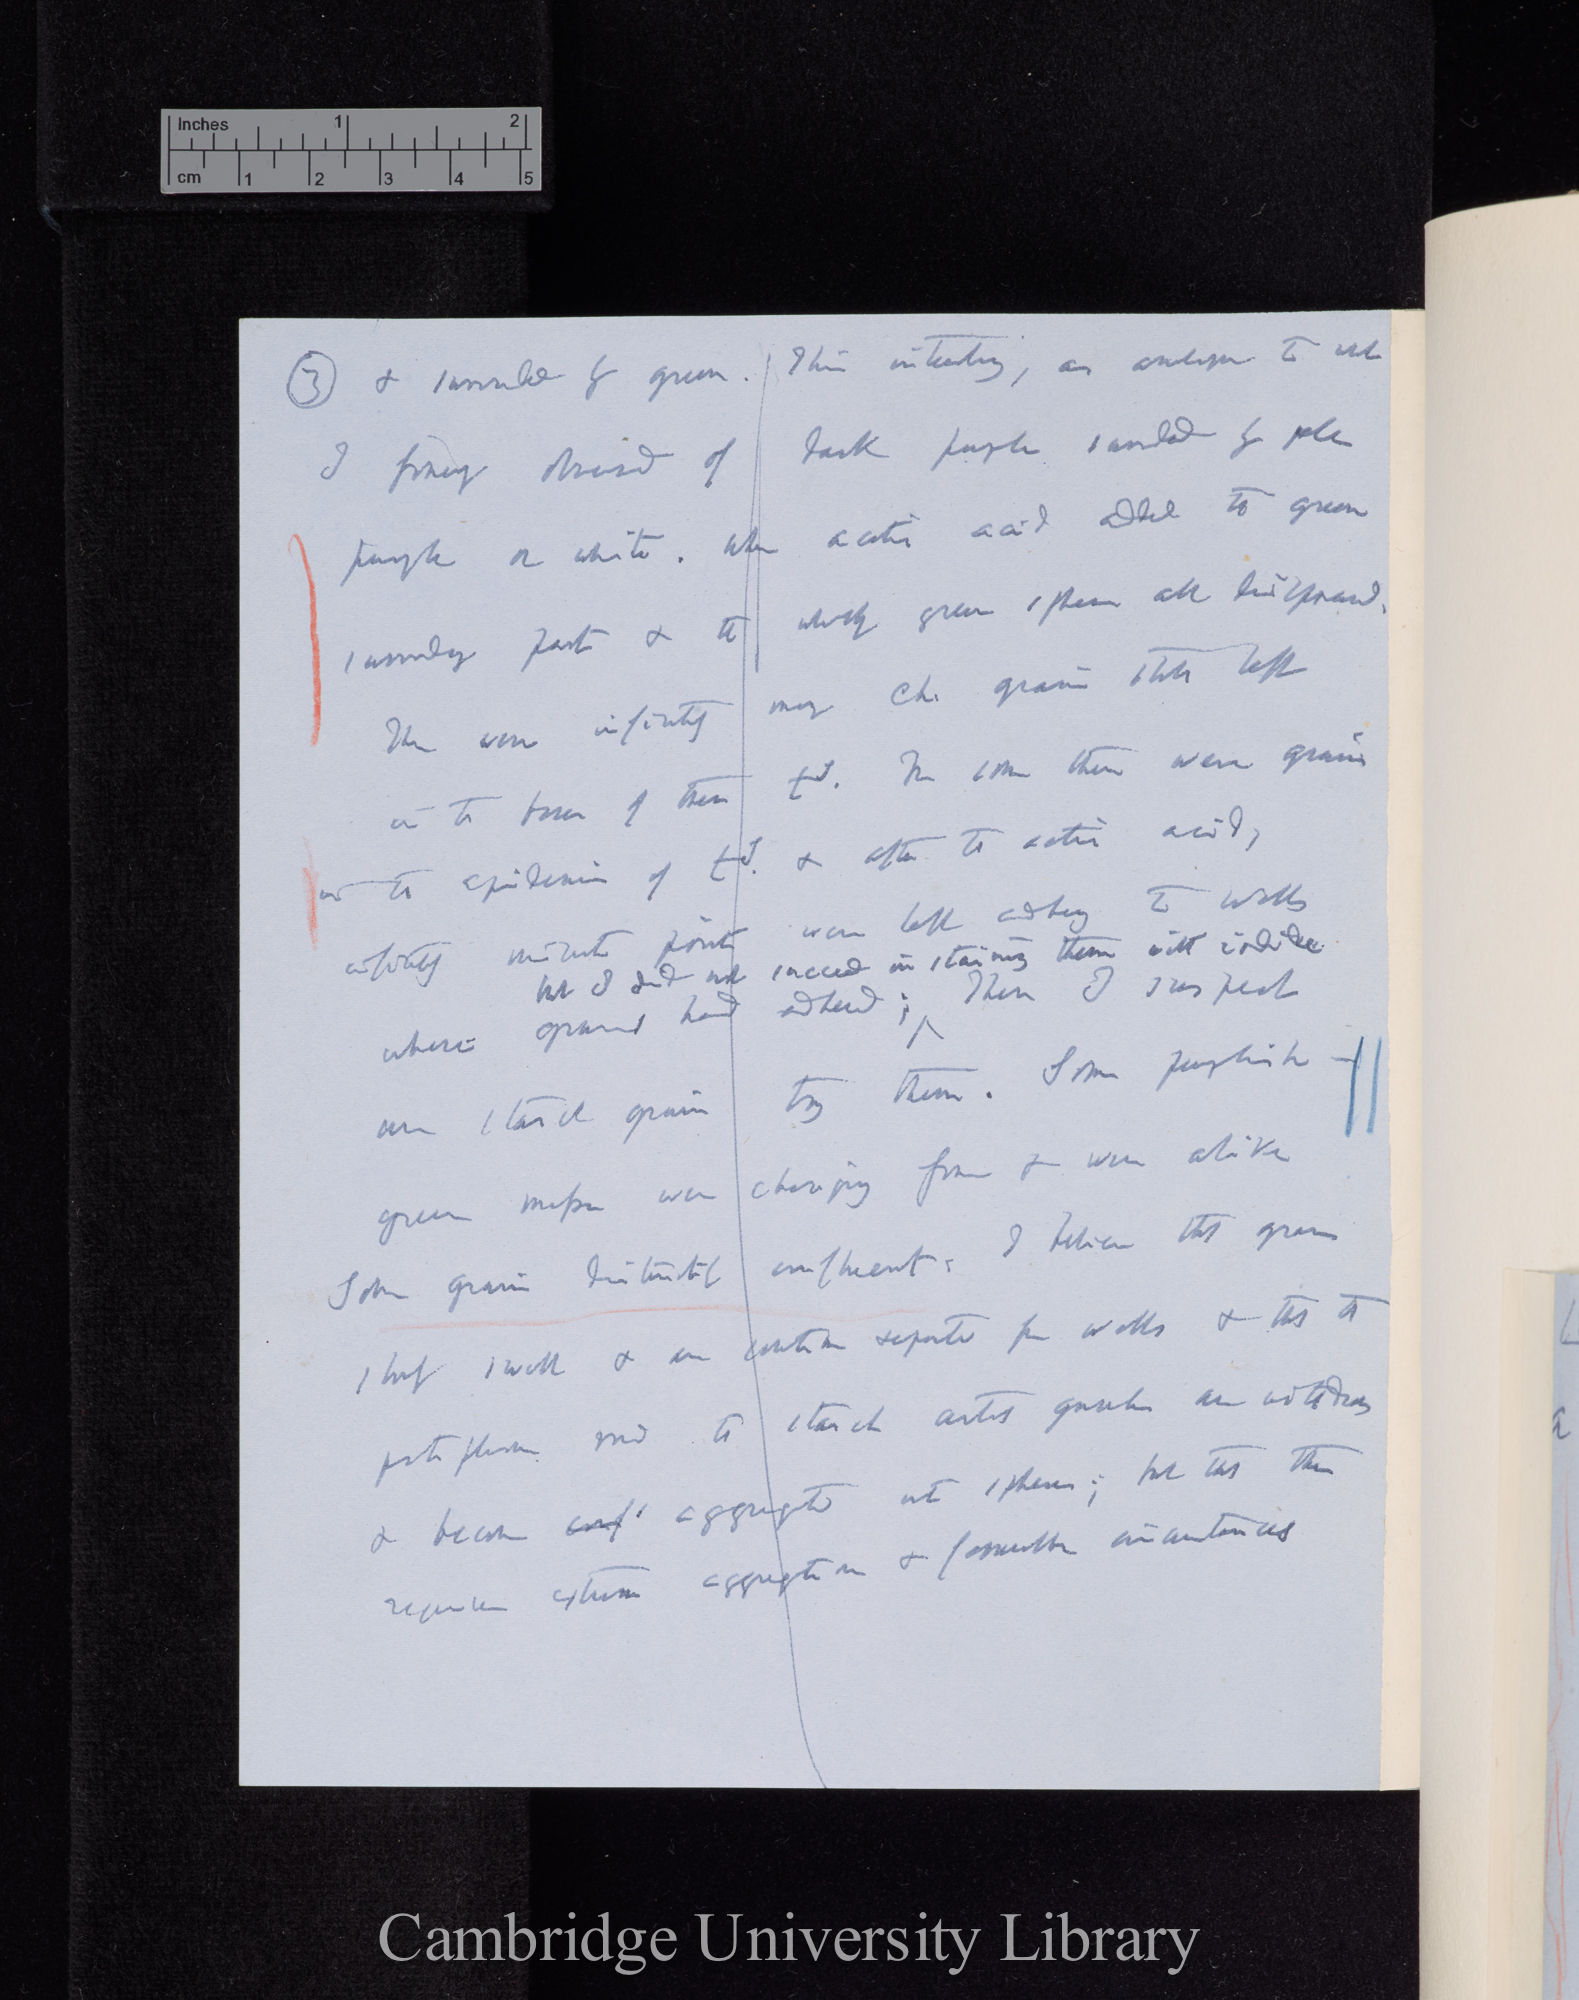 Inches 1 2
cm 1 2 3 4 5
3 & surrounded by green. This interesting, as analogous to what
I formerly observed of dark purple surrounded by pale
purple or white. When acetic acid added to green
surrounding part & the wholly green spheres all disappeared.
There were infinitely many Ch. grains still left
in the bases of these t^d. In some there were grains
in the epidermis of t^d. & after the acetic acid,
infinitely minute points were left adhering to walls
but I did not succeed in staining them with iodine
where grains had adhered; These I suspect
are starch grains try them. Some purplish
green masses were changing form & were alive
Some grains distinctly confluent: I believe that grains
slowly swell & are sometimes separate from walls & that the
protoplasm and the starch are withdrawn
& become conf aggregated into spheres; but that this
requires extreme aggregation & favourable circumstances
Cambridge University Library